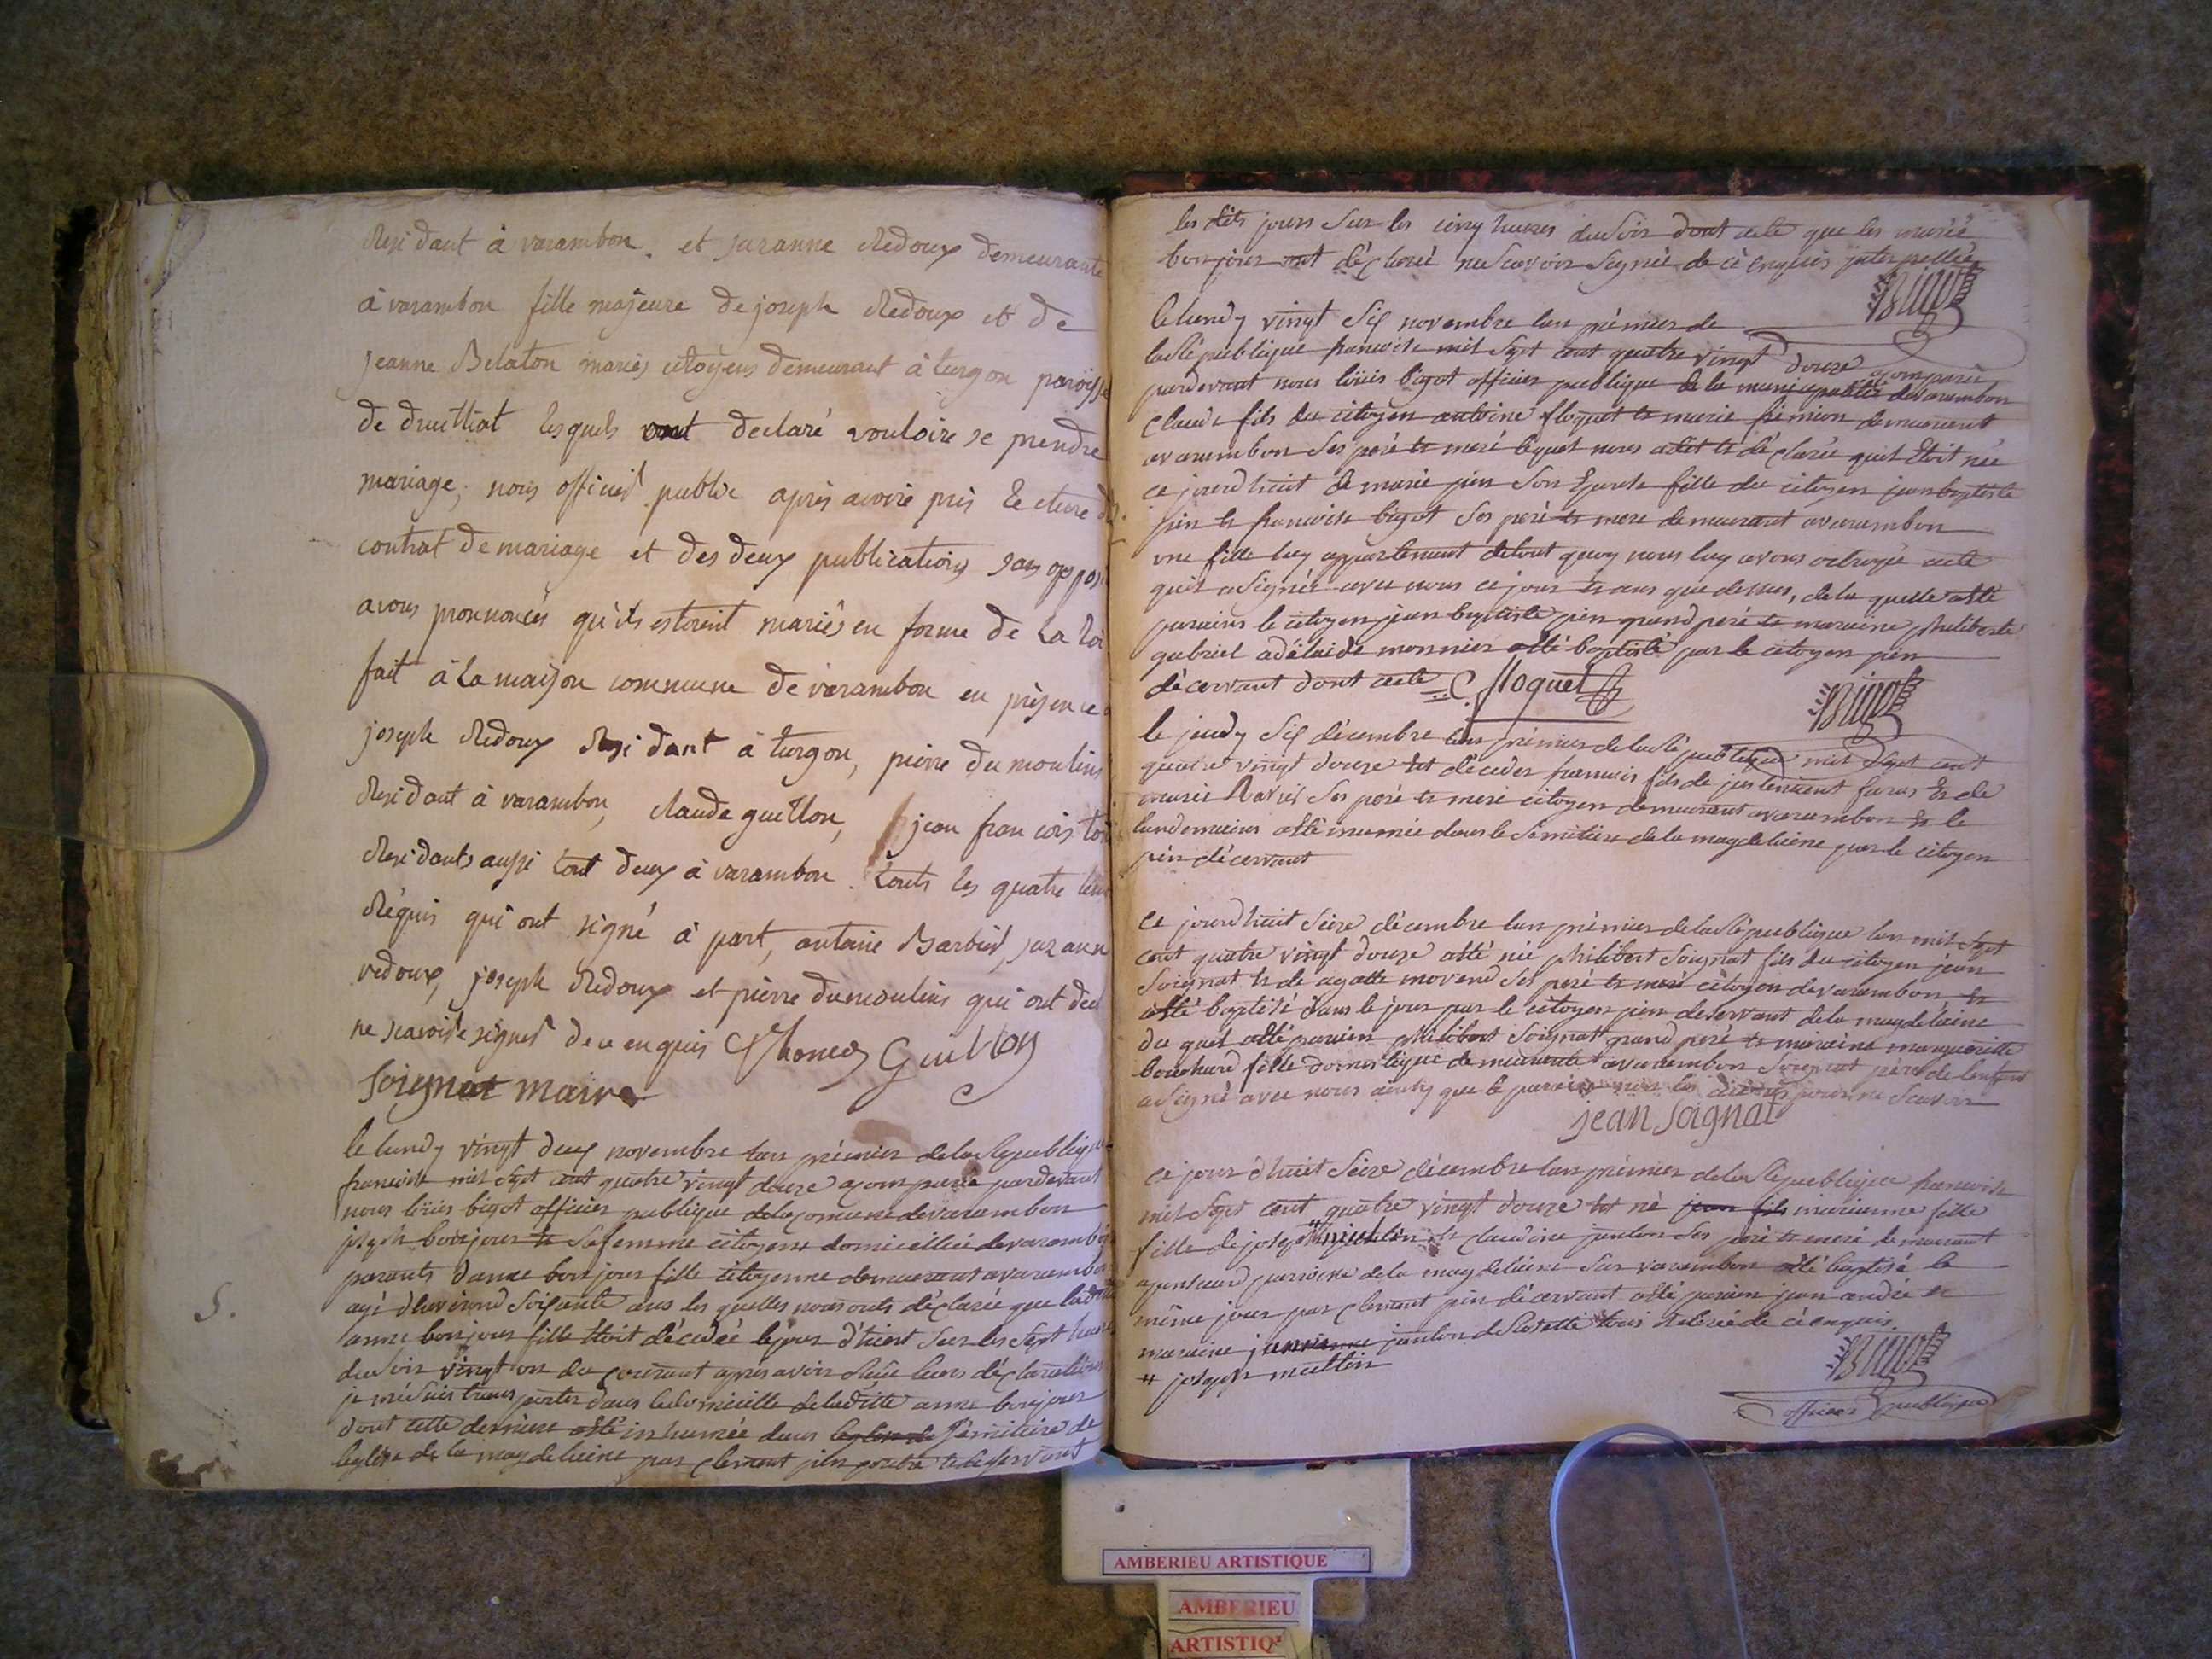 Residant à varambon. et suzanne Redoux demeurante
à varambon fille majeure de joseph Redoux et de
jeanne Belaton mariés citoyens demeurant à turgon paroisse
de druilliat lesquels ont declaré vouloire se prendre
mariage, nous officier public apris avoire pris Lecture du
contrat de mariage et des deux publications sans oppos
avons prononcés qu'ils estoient mariés en forme de La Loi
fait à La maison commune de varambon en présence
joseph Redoux Residant à turgon, pierre dumoulins
Residant à varambon, claude guillon, jean francois
Residants aussi tout deux à varambon. touts les quatre
Réquis qui ont signé à part, antoine Barbier, suzanne
redoux, joseph Redoux et pierre dumoulins qui ont
ne scavoire signer de ce enquis Guillon
soignat maire
le lundy vingt deux novembre lan prémier de la Republique
francoise mil sept cent quatre vingt douze pardevant
nous loüis bigot officier publique de la comune de varambon
joseph bonjour et sa femme citoyens domicilliée de varambon
parants danne bonjour fille citoyenne demeurant a varambon
agé dhenviron soixante ans les quelles nous onts déclarée que ladite
anne bonjour fille Etoit décedée le jour d'hiert sur les sept heures
du soir vingt un du courant apres avoir leurs déclarations
je me suis transporter dans le domicielle de laditte anne bonjour
dont cette derniere atté inhumée dans leglise de sémitiere de
leglise de la magdeleine par clement pin et deservant
S.
les dits jours sur les cinq heures du soir dont acte que les mariés
bonjour ont déclaré ne scavoir signée de cé enquis
Bigot
le lundy vingt six novembre lan prémier de
la République francoise mil sept cent quatre vingt douze
pardevant nous loüis bigot officier publique de la municipalité de varambon
claude fils du citoyen antoine floquet et marie demeurant
avarambon ses peré et meré lequel nous adit et déclarée quil Etoit née
ce jourdhuit de marie pin son Epouse fille du citoyen jean baptiste
pin et francoise bigot ses peré et mere demeurant avarambon
une fille luy appartenant de tout quoy nous luy avons octroyé acte
quil a signée avec nous ce jour et ans que dessus, de la quelle atté
parains le citoyen jean baptiste pin grand peré et maraine philiberte
gabriel adélaide monnier atté baptisté par le citoyen pin
décervant dont acte C. floquet
Bigot
le jeudy six décembre lan prémier de la République mil sept cent
quatre vingt douze Est décedes francois fils de faras Et de
marie Ravier ses peré et meré citoyen demeurant avarambon Et le
landemains atté inumée dans le sémitiere de la magdeleine par le citoyen
pin décervant
ce jourdhuit séize décembre lan prémier de la République lan mil sept
cent quatre vingt douze atté née philibert soignat fils du citoyen jean
soignat et de agatte ses peré et meré citoyen de varambon et
atté baptisé dans le jour par le citoyen pin deservant de la magdeleine
du quel atté parain philibert soignat grand peré et maraine marguerite
bouchard fille domestique demeurante avarambon soignat pere de lenfant
a signé avec nous
jean soignat
ce jour dhuit séize décembre lan prémier de la République francoise
mil sept cent quatre vingt douze Est né jean fils marianne fille
fille de joseph et claudine janton ses peré et meré demeurant
paroisse de la magdeleine sur varambon atté baptisé le
même jour par clement pin décervant atté parain jean andré
maraine janton de cé enquis
# joseph
Bigot
officier publique
AMBERIEU ARTISTIQUE
AMBERIEU
ARTISTIQ